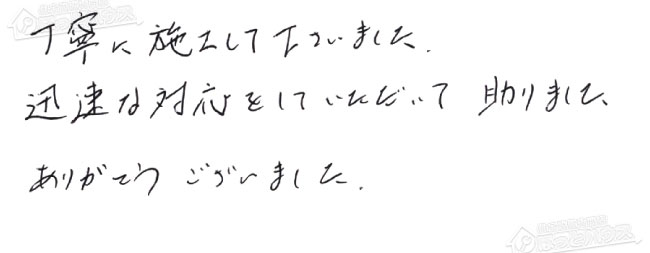 丁寧に施工して下さいました.
迅速な対応をしていただいて 助りました、
ありがとう ございました.